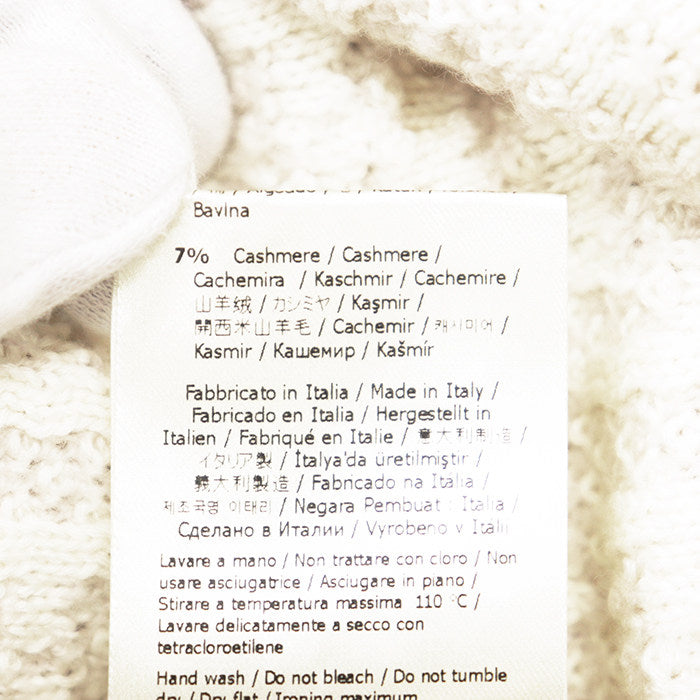 Bavlna
7% Cashmere / Cashmere /
Cachemira / Kaschmir / Cachemire /
山羊绒 / カシミヤ / Kaşmir /
開西米山羊毛 / Cachemir / 캐시미어 /
Kasmir / Кашемир / Kašmír
Fabbricato in Italia / Made in Italy /
Fabricado en Italia / Hergestellt in
Italien / Fabriqué en Italie / 意大利制造 /
イタリア製 / İtalya'da üretilmiştir /
義大利製造 / Fabricado na Italia /
제조국명 이태리 / Negara Pembuat : Italia /
Сделано в Италии / Vyrobeno v Itálii
Lavare a mano / Non trattare con cloro / Non
usare asciugatrice / Asciugare in piano /
Stirare a temperatura massima 110 °C /
Lavare delicatamente a secco con
tetracloroetilene
Hand wash / Do not bleach / Do not tumble
dry / Dry flat / Ironing maximum